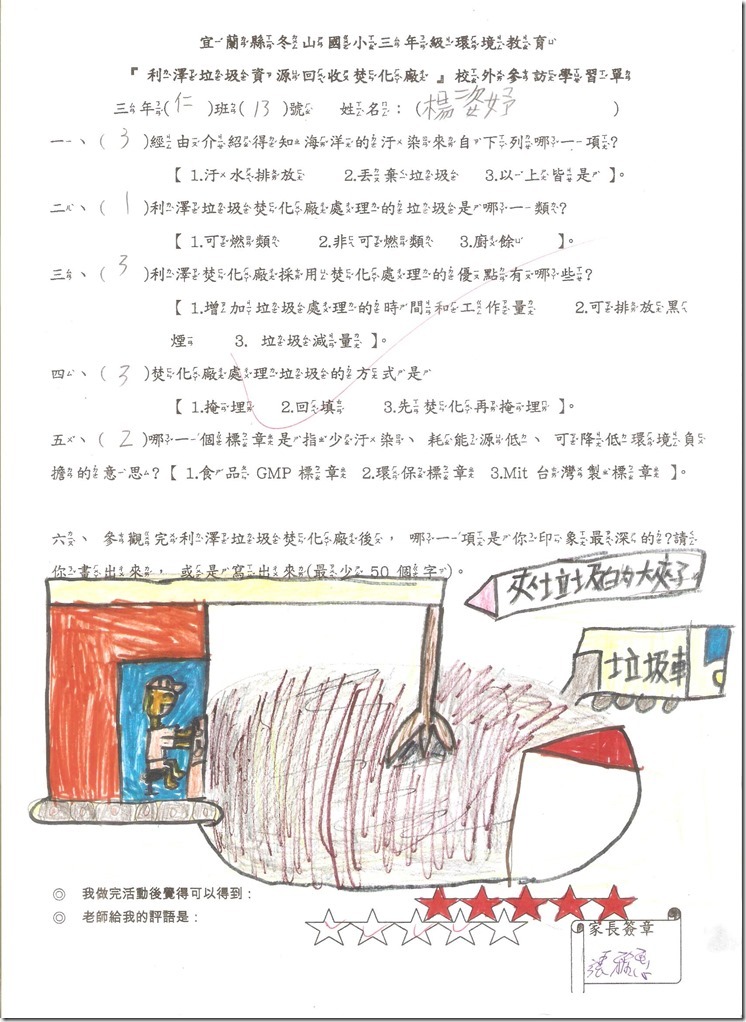 宜蘭縣冬山國小三年級環境教育
『利澤垃圾資源回收焚化廠』校外參訪學習單
三年(仁)班(13)號 姓名：(楊姿妤)
一、(3)經由介紹得知海洋的汙染來自下列哪一項？
【1.汙水排放 2.丟棄垃圾 3.以上皆是】。
二、(1)利澤垃圾焚化廠處理的垃圾是哪一類？
【1.可燃類 2.非可燃類 3.廚餘 】。
三、(3)利澤焚化廠採用焚化處理的優點有哪些？
【1.增加垃圾處理的時間和工作量 2.可排放黑
煙 3. 垃圾減量】。
四、(3)焚化廠處理垃圾的方式是
【1.掩埋 2.回填 3.先焚化再掩埋】。
五、(2)哪一個標章是指少汙染、耗能源低、可降低環境負
擔的意思？【1.食品 GMP 標章 2.環保標章 3.Mit 台灣製標章】。
六、參觀完利澤垃圾焚化廠後，哪一項是你印象最深的？請
你畫出來，或是寫出來(最少 50 個字)。
夾垃圾的大夾子
垃圾車
◎ 我做完活動後覺得可以得到：
◎ 老師給我的評語是：
家長簽章